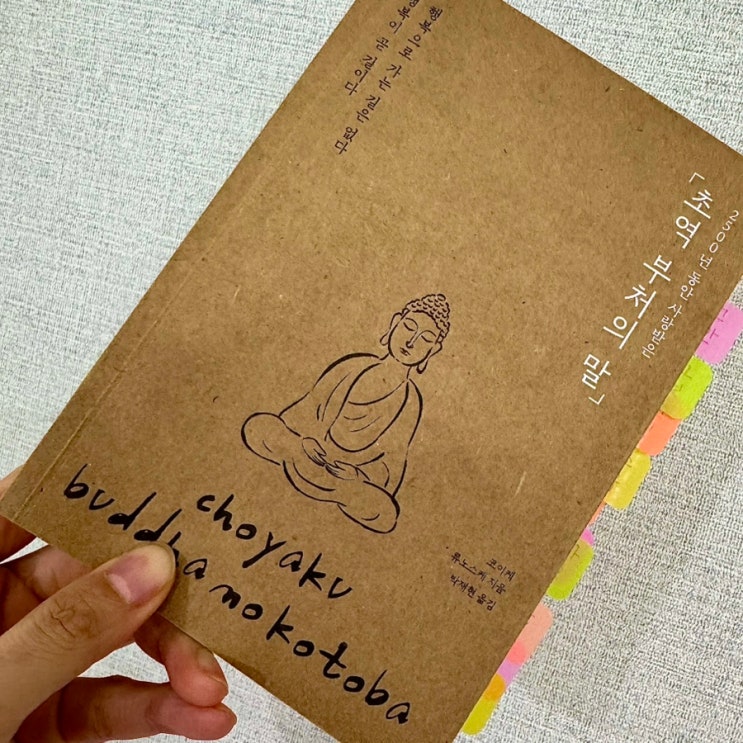 행복으로 가는 길은 없다
행복이 곧 길이다
2500년 동안 사랑받은
「초역 부처의 말」
choyaku
buddha no kotoba
코이케
류노스케 지음
박재현 옮김